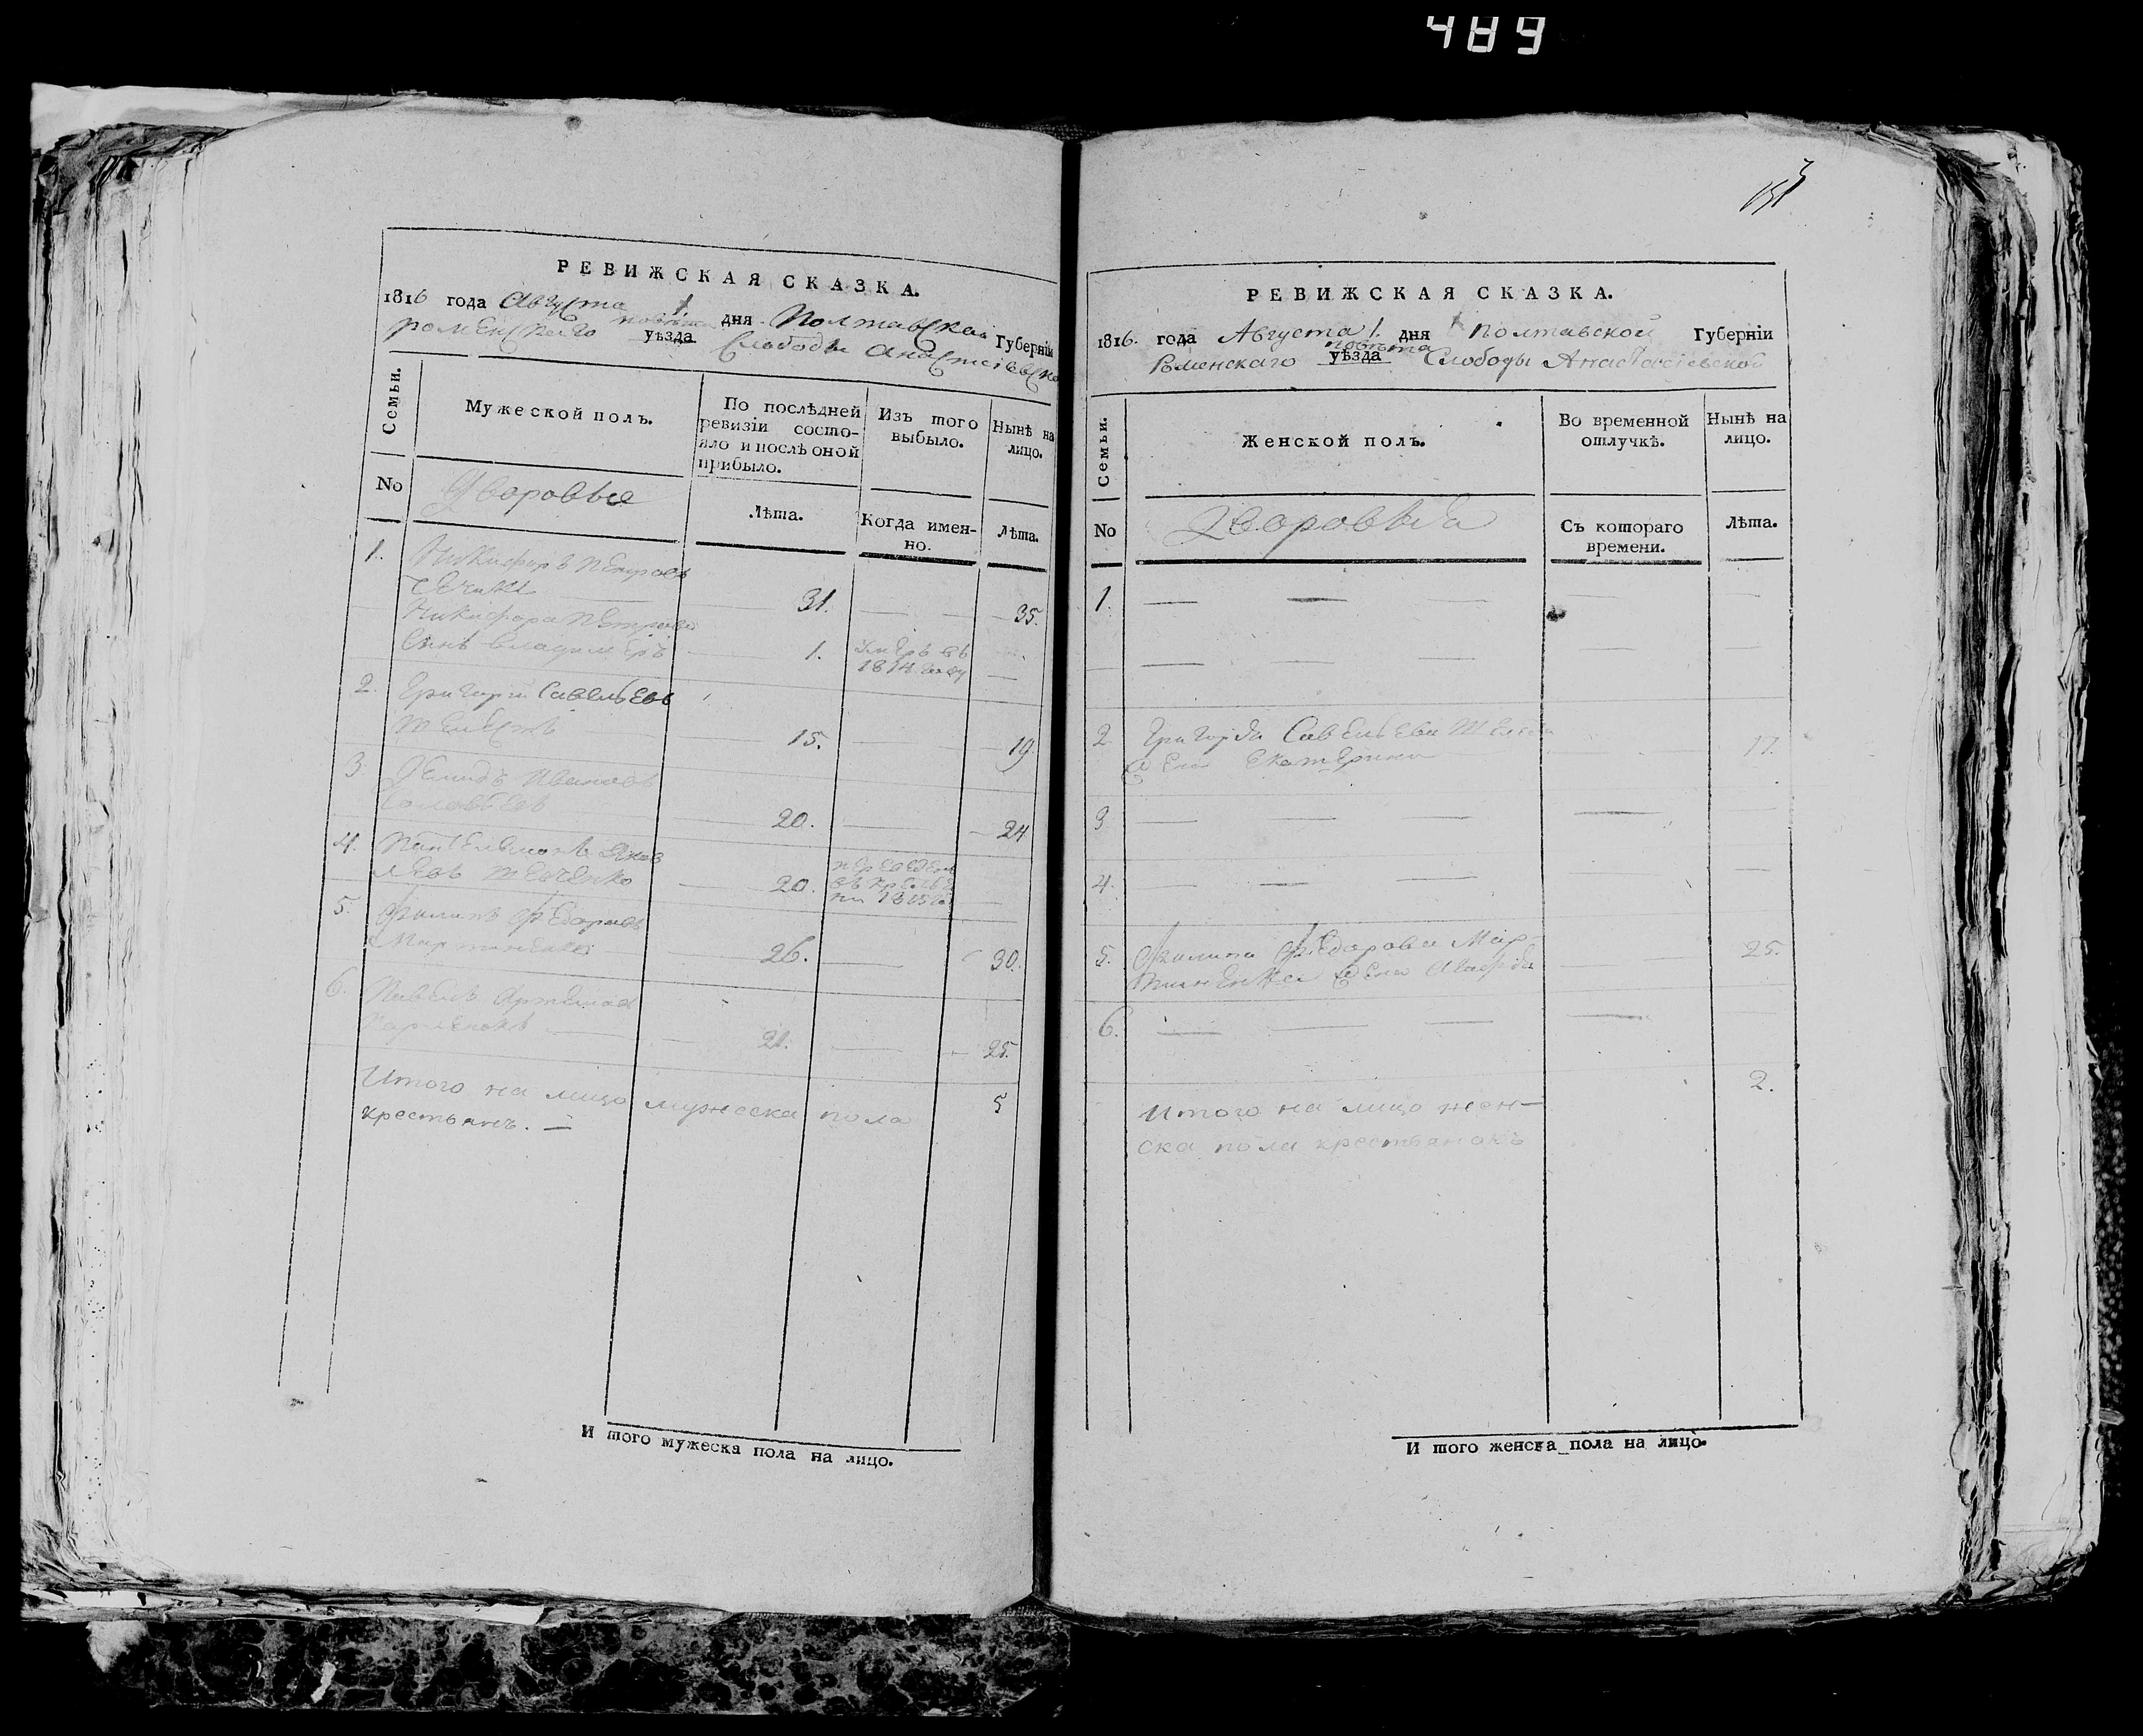 489
РЕВИЖСКАЯ СКАЗКА.
1816 года Августа 1. дня Полтавской Губерніи
роменского повѣта уѣзда Слободы
Семьи.
Мужеской полъ.
По послѣдней ревизіи состо-
яло и послѣ оной прибыло.
Изъ того выбыло.
Нынѣ на лицо.
No
Дворовые
Лѣта.
Когда имен-
но.
Лѣта.
1. Никифоръ Петровъ
31. 35.
Никифора Петрова
Сынъ Владимеръ 1. Умеръ въ
1814 году
2. Григорій Савельевъ
15. 19.
3. Демидъ Ивановъ
20. 24
4. Пантелемонъ Яков
левъ 20.
5. Филипъ Федоровъ
26. 30.
6. Павелъ
21. 25.
Итого на лицо мужеска пола 5
крестьянъ.
И того мужеска пола на лицо.
РЕВИЖСКАЯ СКАЗКА.
1816. года Августа 1. дня Полтавской Губерніи
Роменскаго повѣта уѣзда Слободы Анастасіевской
Семьи.
Женской полъ.
Во временной
отлучкѣ.
Нынѣ на
лицо.
No
Дворовыя
Съ котораго
времени.
Лѣта.
1.
2 Григорія Савельева
Жена Екатерина 17.
3
4.
5. Филипа Федорова Мар-
Жена 25.
6.
2.
Итого на лицо жен-
ска пола крестьянокъ
И того женска пола на лицо.